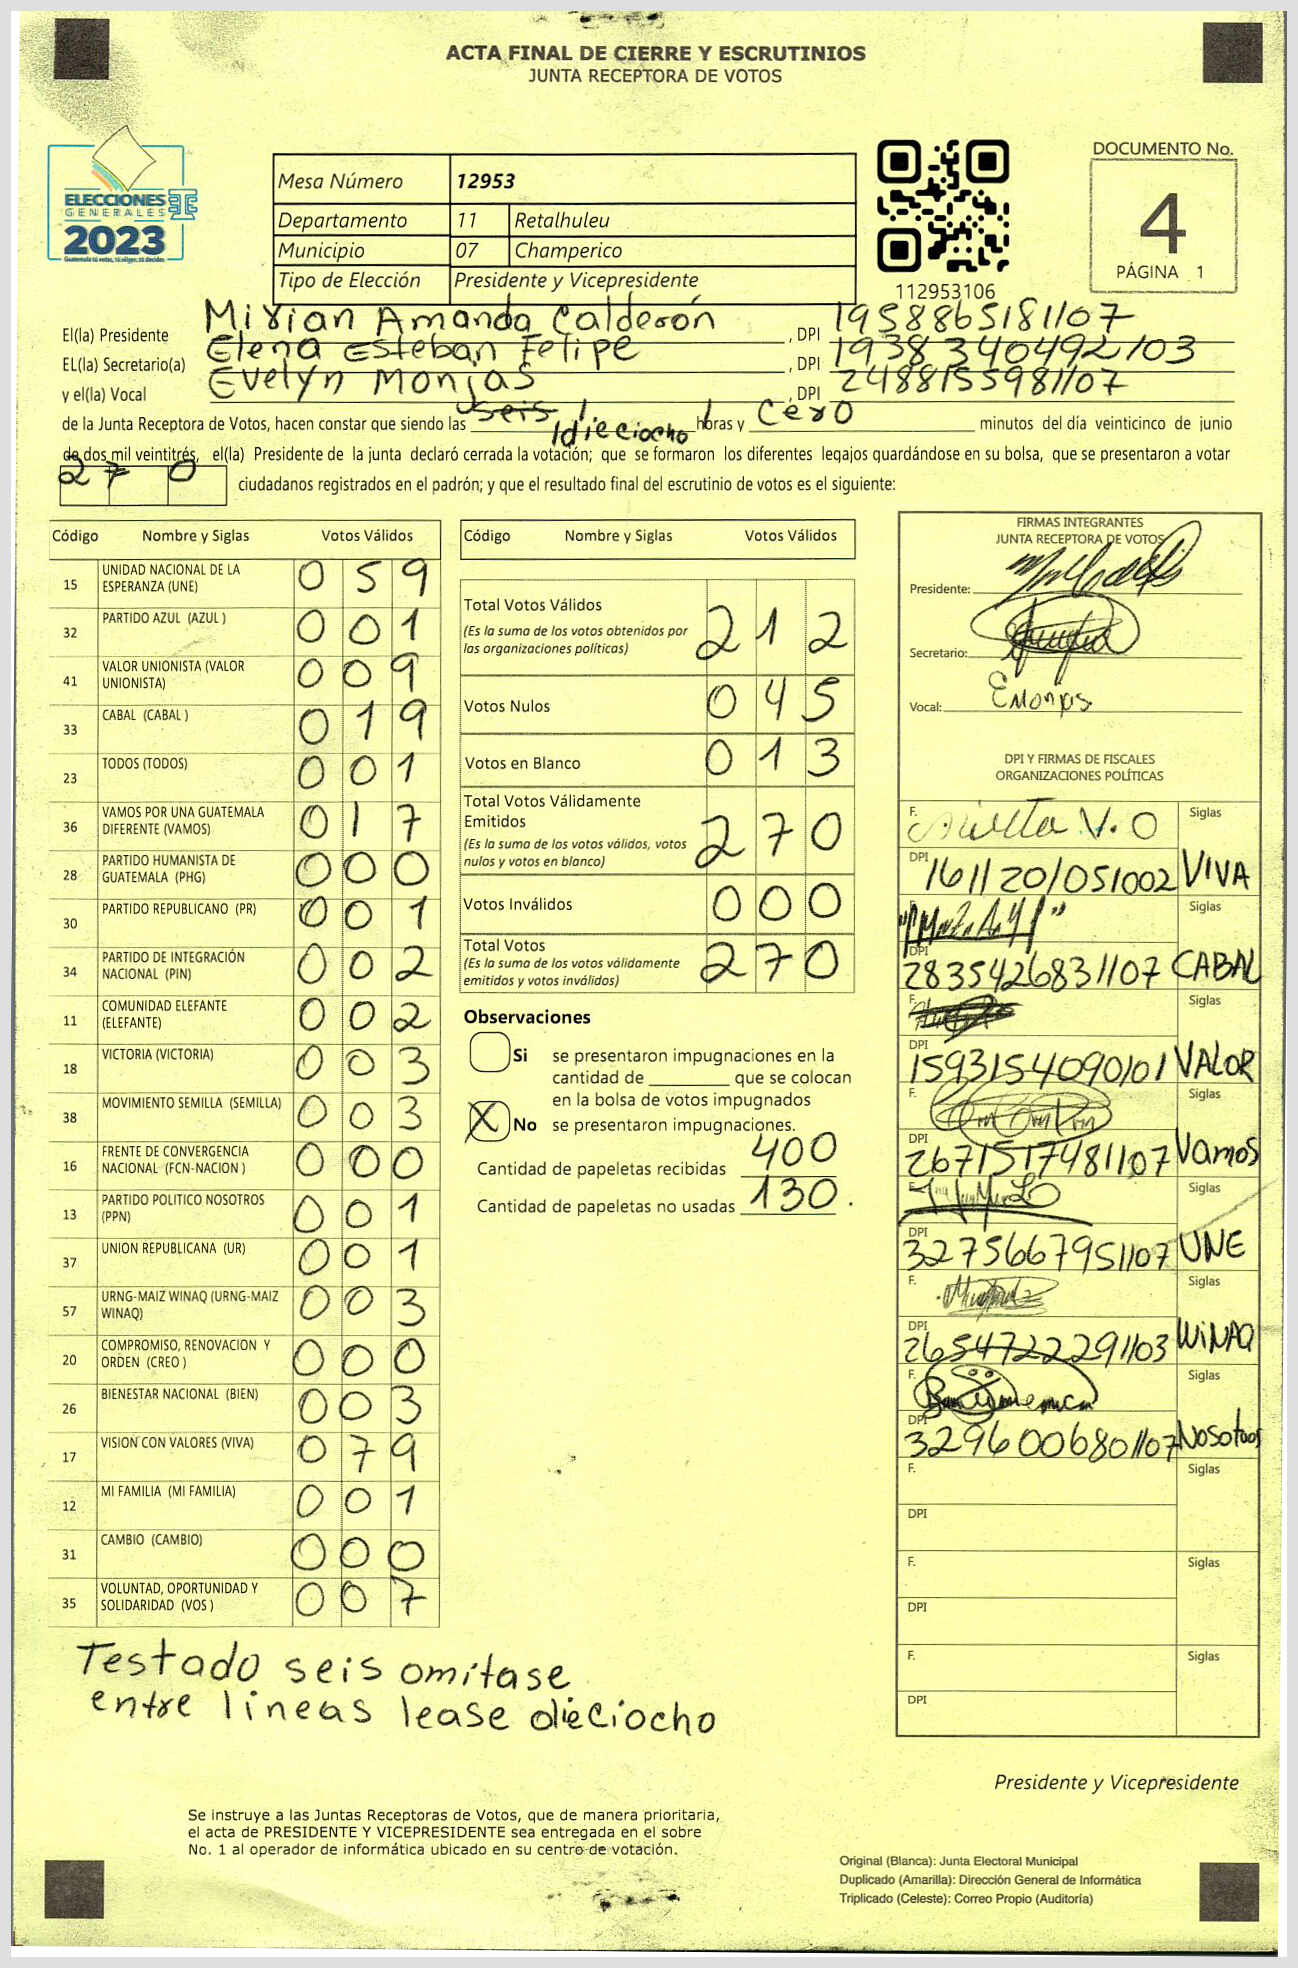 ACTA FINAL DE CIERRE Y ESCRUTINIOS
JUNTA RECEPTORA DE VOTOS
ELECCIONES
GENERALES
2023
Guatemala tú votas, tú eliges, tú decides
Mesa Número 12953
Departamento 11 Retalhuleu
Municipio 07 Champerico
Tipo de Elección Presidente y Vicepresidente
112953106
DOCUMENTO No.
4
PÁGINA 1
El(la) Presidente Mirian Amanda Calderón , DPI 1958865181107
EL(la) Secretario(a) Elena Esteban Felipe , DPI 1938340492103
y el(la) Vocal Evelyn Monjas , DPI 2488155981107
de la Junta Receptora de Votos, hacen constar que siendo las seis / dieciocho / horas y cero minutos del día veinticinco de junio
de dos mil veintitrés, el(la) Presidente de la junta declaró cerrada la votación; que se formaron los diferentes legajos quardándose en su bolsa, que se presentaron a votar
270 ciudadanos registrados en el padrón; y que el resultado final del escrutinio de votos es el siguiente:
Código Nombre y Siglas Votos Válidos
15 UNIDAD NACIONAL DE LA ESPERANZA (UNE) 059
32 PARTIDO AZUL (AZUL ) 001
41 VALOR UNIONISTA (VALOR UNIONISTA) 009
33 CABAL (CABAL ) 019
23 TODOS (TODOS) 001
36 VAMOS POR UNA GUATEMALA DIFERENTE (VAMOS) 017
28 PARTIDO HUMANISTA DE GUATEMALA (PHG) 000
30 PARTIDO REPUBLICANO (PR) 001
34 PARTIDO DE INTEGRACIÓN NACIONAL (PIN) 002
11 COMUNIDAD ELEFANTE (ELEFANTE) 002
18 VICTORIA (VICTORIA) 003
38 MOVIMIENTO SEMILLA (SEMILLA) 003
16 FRENTE DE CONVERGENCIA NACIONAL (FCN-NACION ) 000
13 PARTIDO POLITICO NOSOTROS (PPN) 001
37 UNION REPUBLICANA (UR) 001
57 URNG-MAIZ WINAQ (URNG-MAIZ WINAQ) 003
20 COMPROMISO, RENOVACION Y ORDEN (CREO ) 000
26 BIENESTAR NACIONAL (BIEN) 003
17 VISION CON VALORES (VIVA) 079
12 MI FAMILIA (MI FAMILIA) 001
31 CAMBIO (CAMBIO) 000
35 VOLUNTAD, OPORTUNIDAD Y SOLIDARIDAD (VOS ) 007
Testado seis omitase
entre lineas lease dieciocho
Código Nombre y Siglas Votos Válidos
Total Votos Válidos 212
(Es la suma de los votos obtenidos por
las organizaciones políticas)
Votos Nulos 045
Votos en Blanco 013
Total Votos Válidamente
Emitidos 270
(Es la suma de los votos válidos, votos
nulos y votos en blanco)
Votos Inválidos 000
Total Votos 270
(Es la suma de los votos válidamente
emitidos y votos inválidos)
Observaciones
Si se presentaron impugnaciones en la
cantidad de ________ que se colocan
en la bolsa de votos impugnados
X No se presentaron impugnaciones.
Cantidad de papeletas recibidas 400
Cantidad de papeletas no usadas 130.
FIRMAS INTEGRANTES
JUNTA RECEPTORA DE VOTOS
Presidente:
Secretario:
Vocal: EMonjas
DPI Y FIRMAS DE FISCALES
ORGANIZACIONES POLÍTICAS
F. V.O Siglas
DPI 1611201051002 VIVA
Siglas
DPI 2835426831107 CABAL
F. Siglas
DPI 1593154090101 VALOR
F. Siglas
DPI 2671517481107 Vamos
F. Siglas
DPI 3275667951107 UNE
F. Siglas
DPI 2654722291103 WINAQ
F. Siglas
DPI 3296006801107 Nosotros
F. Siglas
DPI
F. Siglas
DPI
F. Siglas
DPI
Presidente y Vicepresidente
Se instruye a las Juntas Receptoras de Votos, que de manera prioritaria,
el acta de PRESIDENTE Y VICEPRESIDENTE sea entregada en el sobre
No. 1 al operador de informática ubicado en su centro de votación.
Original (Blanca): Junta Electoral Municipal
Duplicado (Amarilla): Dirección General de Informática
Triplicado (Celeste): Correo Propio (Auditoría)